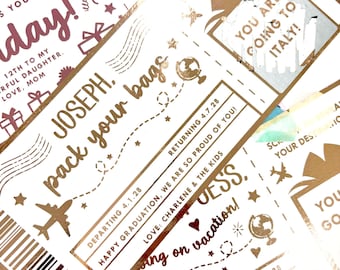 day!
12TH TO MY
DAUGHTER.
LOVE, MOM
JOSEPH
pack your bags
DEPARTING 4.1.28
RETURNING 4.7.28
HAPPY GRADUATION, WE ARE SO PROUD OF YOU!
LOVE: CHARLENE & THE KIDS
YOU ARE
GOING TO
ITALY!
JESS,
going on vacation!
YOUR
YOU
GO